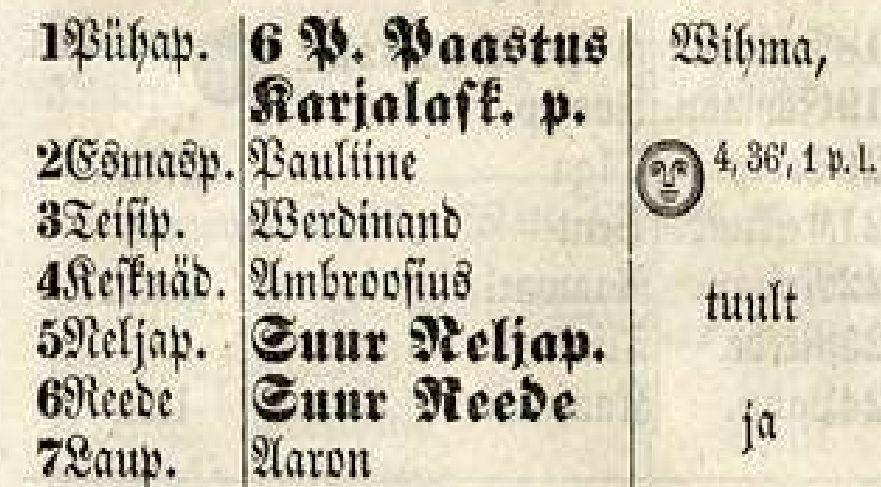 1 Pühap. 6 P. Paastus Wihma,
Karjalask. p.
2 Esmasp. Pauliine 4, 36', 1 p. l.
3 Teisip. Werdinand
4 Kesknäd. Ambroosius tuult
5 Neljap. Suur Neljap.
6 Reede Suur Reede ja
7 Laup. Aaron